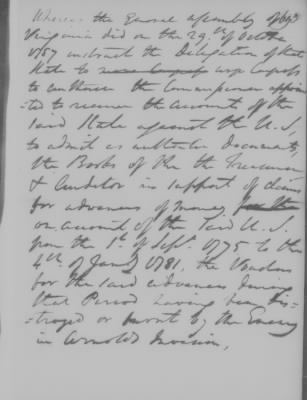 Whereas the General assembly of
Virginia did on the 29th of Octobr
1787 instruct the Delegation of that
State to urge Congress
to authorise the Commissioners appoin
ted to receive the accounts of the
said State against the U. S.
to admit as authentic Documents
the Books of the the Treasurer
& Auditor in support of claims
for advances of money
on account of the said U. S.
from the 1st of Sept. 1775 to the
4th of Jany 1781, the Vouchers
for the said advances during
that Period having been dis-
-troyed or burnt by the Enemy
in Arnold's Invasion,